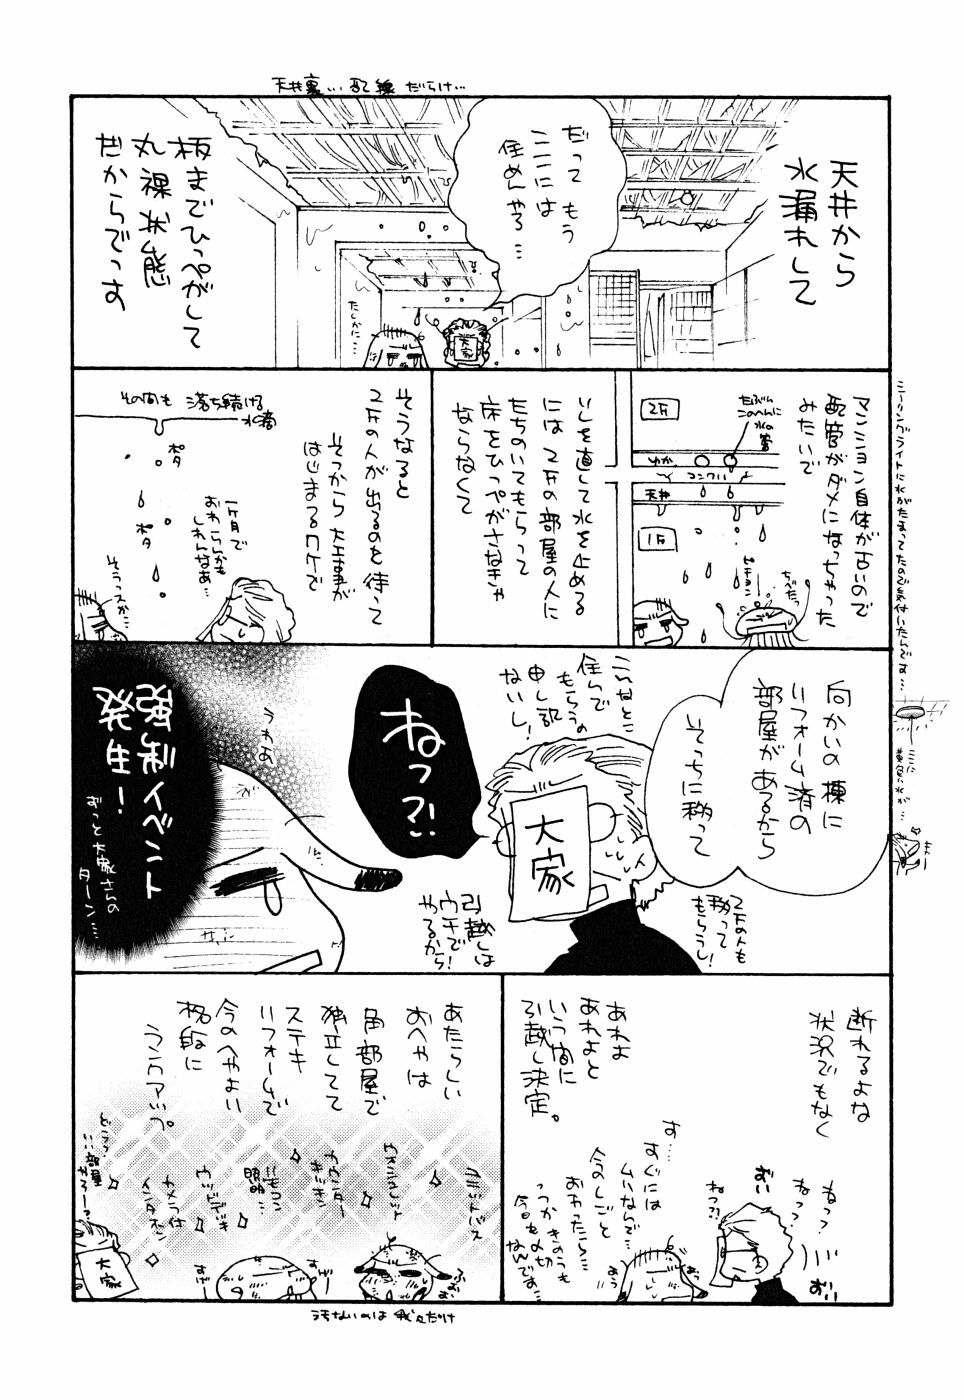 天井裏…配線だらけ…
天井から
水漏れして
だって もう
ここには
住めんやろ…
たしかに…
大家
板までひっぺがして
丸裸状態
だからでっす
マンション自体が古いので
配管がダメになっちゃった
みたいで
2F
たぶん
このへんに
水の管
ゆか
コンクリ
天井
1F
ピチョン
ちべたっ
シーリングライトに水がたまってたので気付いたんです…
いしを直して水を止める
には2Fの部屋の人に
たちのいてもらって
床をひっぺがさなきゃ
ならなくて
そうなると
2Fの人が出るのを待って
そっから大工事が
はじまるワケで
その間も 落ち続ける
水滴
ポタ
ポタ
一ヶ月で
おわらんかも
しれんなあ…
そうっスか…
向かいの棟に
リフォーム済の
部屋があるから
そっちに移って
こんなとこ
住んで
もらうの
申し訳
ないし!
大家
2Fの人も
移って
もらうし!
引越しは
ウチで
やるから!
ねっ?!
うわあ
強制イベント
発生!
ずっと大家さんの
ターン…
断れるよな
状況でもなく
あれよ
あれよと
いう間に
引越し決定。
ねっ?
ねっ?
ねっ?!
おいっ
す……
すぐには
ムリなんで…
今のしごと
おわったら…
つっかきのうも
今日も〆切
なんでず…
あたらしい
おへやは
角部屋で
独立してて
ステキ
リフォームで
今のへやよい
格段に
ランクアップ。
カウンター
キッチン
リモコン
照明
ウッドデッキ
カメラ付
インタホン
どうっ
いい部屋
やろー?
大家
すげー
すげー
うそないのは 我々だけ